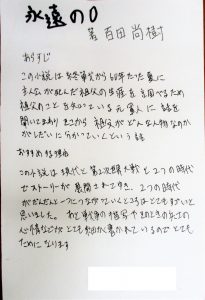 永遠の0
著 百田 尚樹
あらすじ
この小説は終戦から60年たった夏に
主人公が死んだ祖父の生涯を調べるため
祖父のことを知っている元軍人に話を
聞いてまわりそこから祖父がどんな人物なのか
がしだいに分かっていくという話
おすすめする理由
この小説は現代と第2次世界大戦と2つの時代
でストーリーが展開されてゆき、2つの時代
がだんだんと一つにつながっていくところはとてもすごいと
思いました。 わと戦争の描写やそのときの兵士の
心情などがとても細かく書かれているのでとても
ためになります